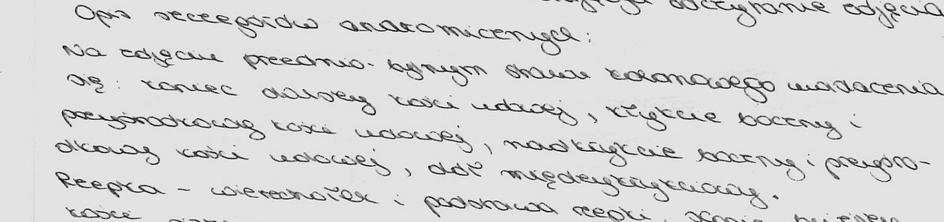 odczytanie zdjęcia
Opis szczegółów anatomicznych:
Na zdjęciu przednio-tylnym stawu kolanowego uwidacznia
się: koniec dalszy kości udowej, kłykcie boczny i
przyśrodkowy kości udowej, nadkłykcie boczny i przyśro-
dkowy kości udowej, dół międzykłykciowy.
Rzepka - wierzchołek i podstawa rzepki.
kości